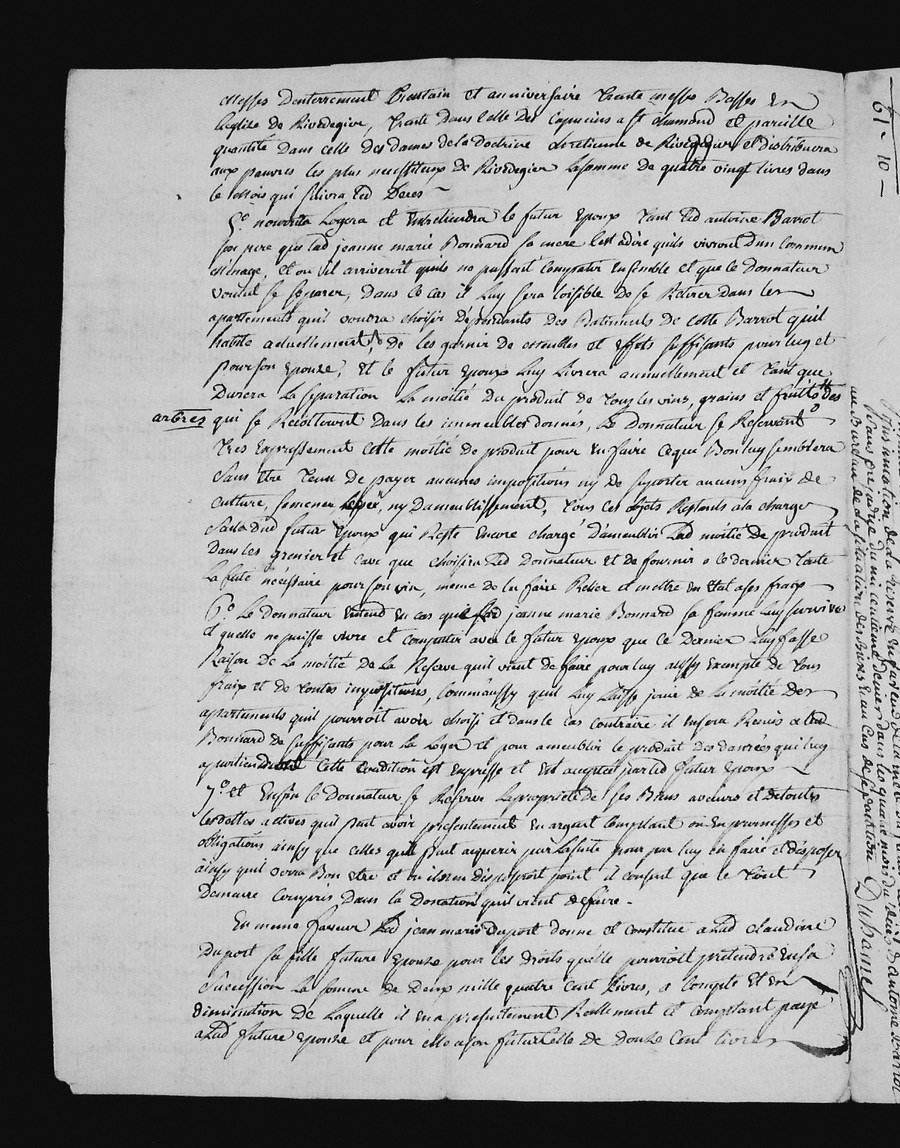 messes denterrement Trentain et anniversaire trente messes Basses en
leglise de Rivedegier, trente dans celle des Capucins a st chamond et pareille
quantité dans celle des dames de la doctrine chretienne de Rivedegier et distribuera
aux pauvres les plus necessiteux de Rivedegier la somme de quatre vingt livres dans
le mois qui suivra led deces -
5.° nourrira Logera et entretiendra le futur Epoux tant led antoine Barrot
son pere que lad jeanne marie Bonnard sa mere c'est adire quils vivront d'un commun
menage, et ou il arriveroit quils ne pussent compatir ensemble et que le Donnateur
voulut se separer, dans ce cas il luy sera loisible de se Retirer dans les
apartements quil voudra choisir dépendants des Batiments de cotte Barrot quil
habite actuellement, de les garnir de meubles et effets suffisants pour luy et
pour son epouse, et le futur epoux luy livrera annuellement et tant que
Durera la separation la moitié du produit de tous les vins, grains et fruits des
arbres qui se Recolteront dans les immeubles donnés, le Donnateur se Reservant
tres expressement cette moitié de produit pour en faire ceque Bon luy semblera
sans etre tenu de payer aucunes impositions ny de suporter aucuns fraix de
culture, semence levée, ny Dameublissement, tous ces objets Restants a la charge
dud futur Epoux qui Reste Encore chargé Dameublir lad moitié de produit
Dans les grenier et cave que choisira led Donnateur et de fournir a ce dernier toute
la futé nécessaire pour son vin, meme de la faire Relier et mettre en Etat a ses fraix
6.° Le Donnateur entend en cas que lad jeanne marie Bonnard sa femme luy survive
et quelle ne puisse vivre et compatir avec le futur epoux que ce Dernier luy fasse
Raison de la moitié de la Reserve quil vient de faire pour luy aussy exempte de tous
fraix et de toutes impositions, comm'aussy quil luy laisse jouir de la moitié des
apartements quil pourroit avoir choisi et dans le cas contraire il en sera Remis a lad
Bonnard de suffisants pour la loger et pour ameublir le produit des danrées qui luy
apartiendront cette condition est expresse et est acceptée par led futur Epoux
7.° et Enfin le Donnateur se Reserve la propriété de ses Biens avenirs et de toutes
les dettes actives quil peut avoir presentement en argent comptant ou en promesses et
obligations ainsy que celles quil peut aquerir par la suite pour par luy en faire et disposer
ainsy quil verra Bon etre et ou il n'en disposeroit point il consent que le tout
Demeure compris dans la Donation quil vient de faire -
En meme faveur led jean marie Duport donne et constitue a lad claudine
Duport sa fille future epouse pour les droits quelle pourroit pretendre en sa
Succession la somme de Deux mille quatre cent Livres, a compte et en
diminution de Laquelle il en a presentement Reellement et comptant payé
a lad future epouse et pour elle a son futur celle de douze cent livres
61 - 10 -
de la reserve
dans les quatre mois du deces d'antoine Barrot
au Bureau de la situation des biens et au cas de separation Duhamel